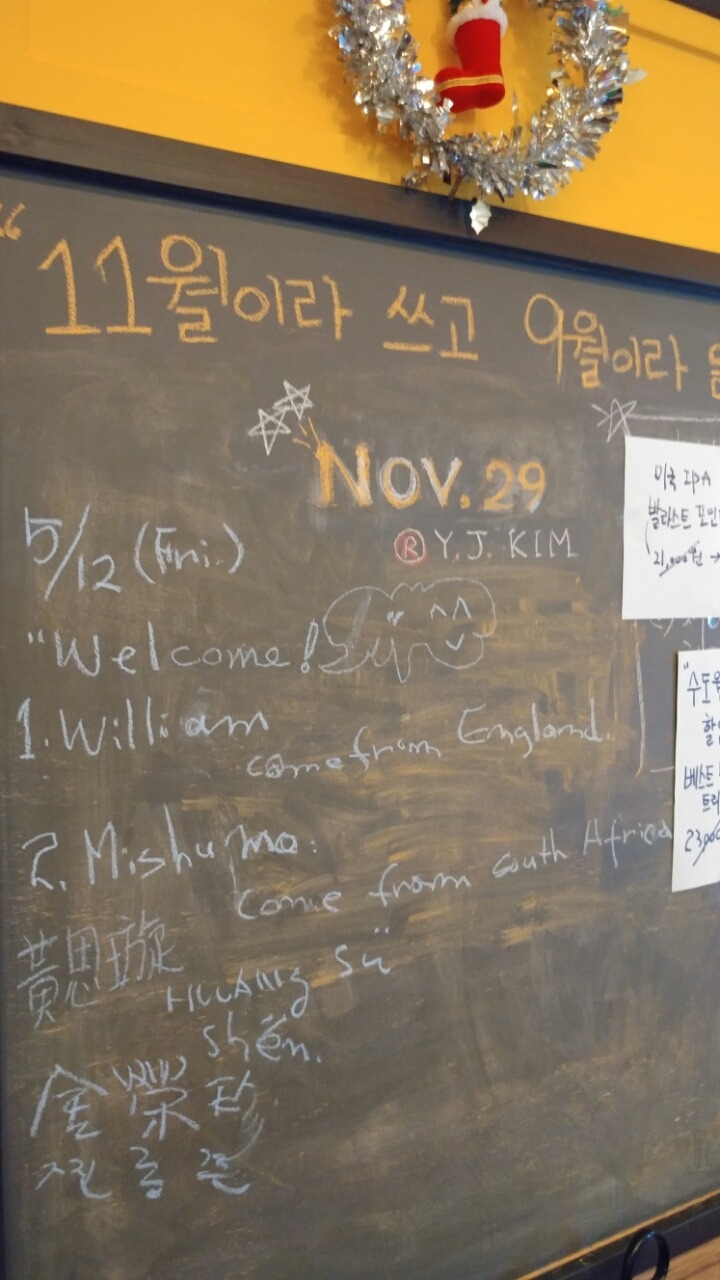 11월이라 쓰고 9월이라
NOV. 29
® Y.J. KIM
5/12 (Fri.)
"Welcome!
1. William
come from England.
2. Mishumo:
come from south Africa
黃思璇
HUANg Sü
shén.
金榮珍
찐롱쩐
미국 IPA
발라스트 포인
21,000원 →
"수도원
할인
베스트
트라
23,000